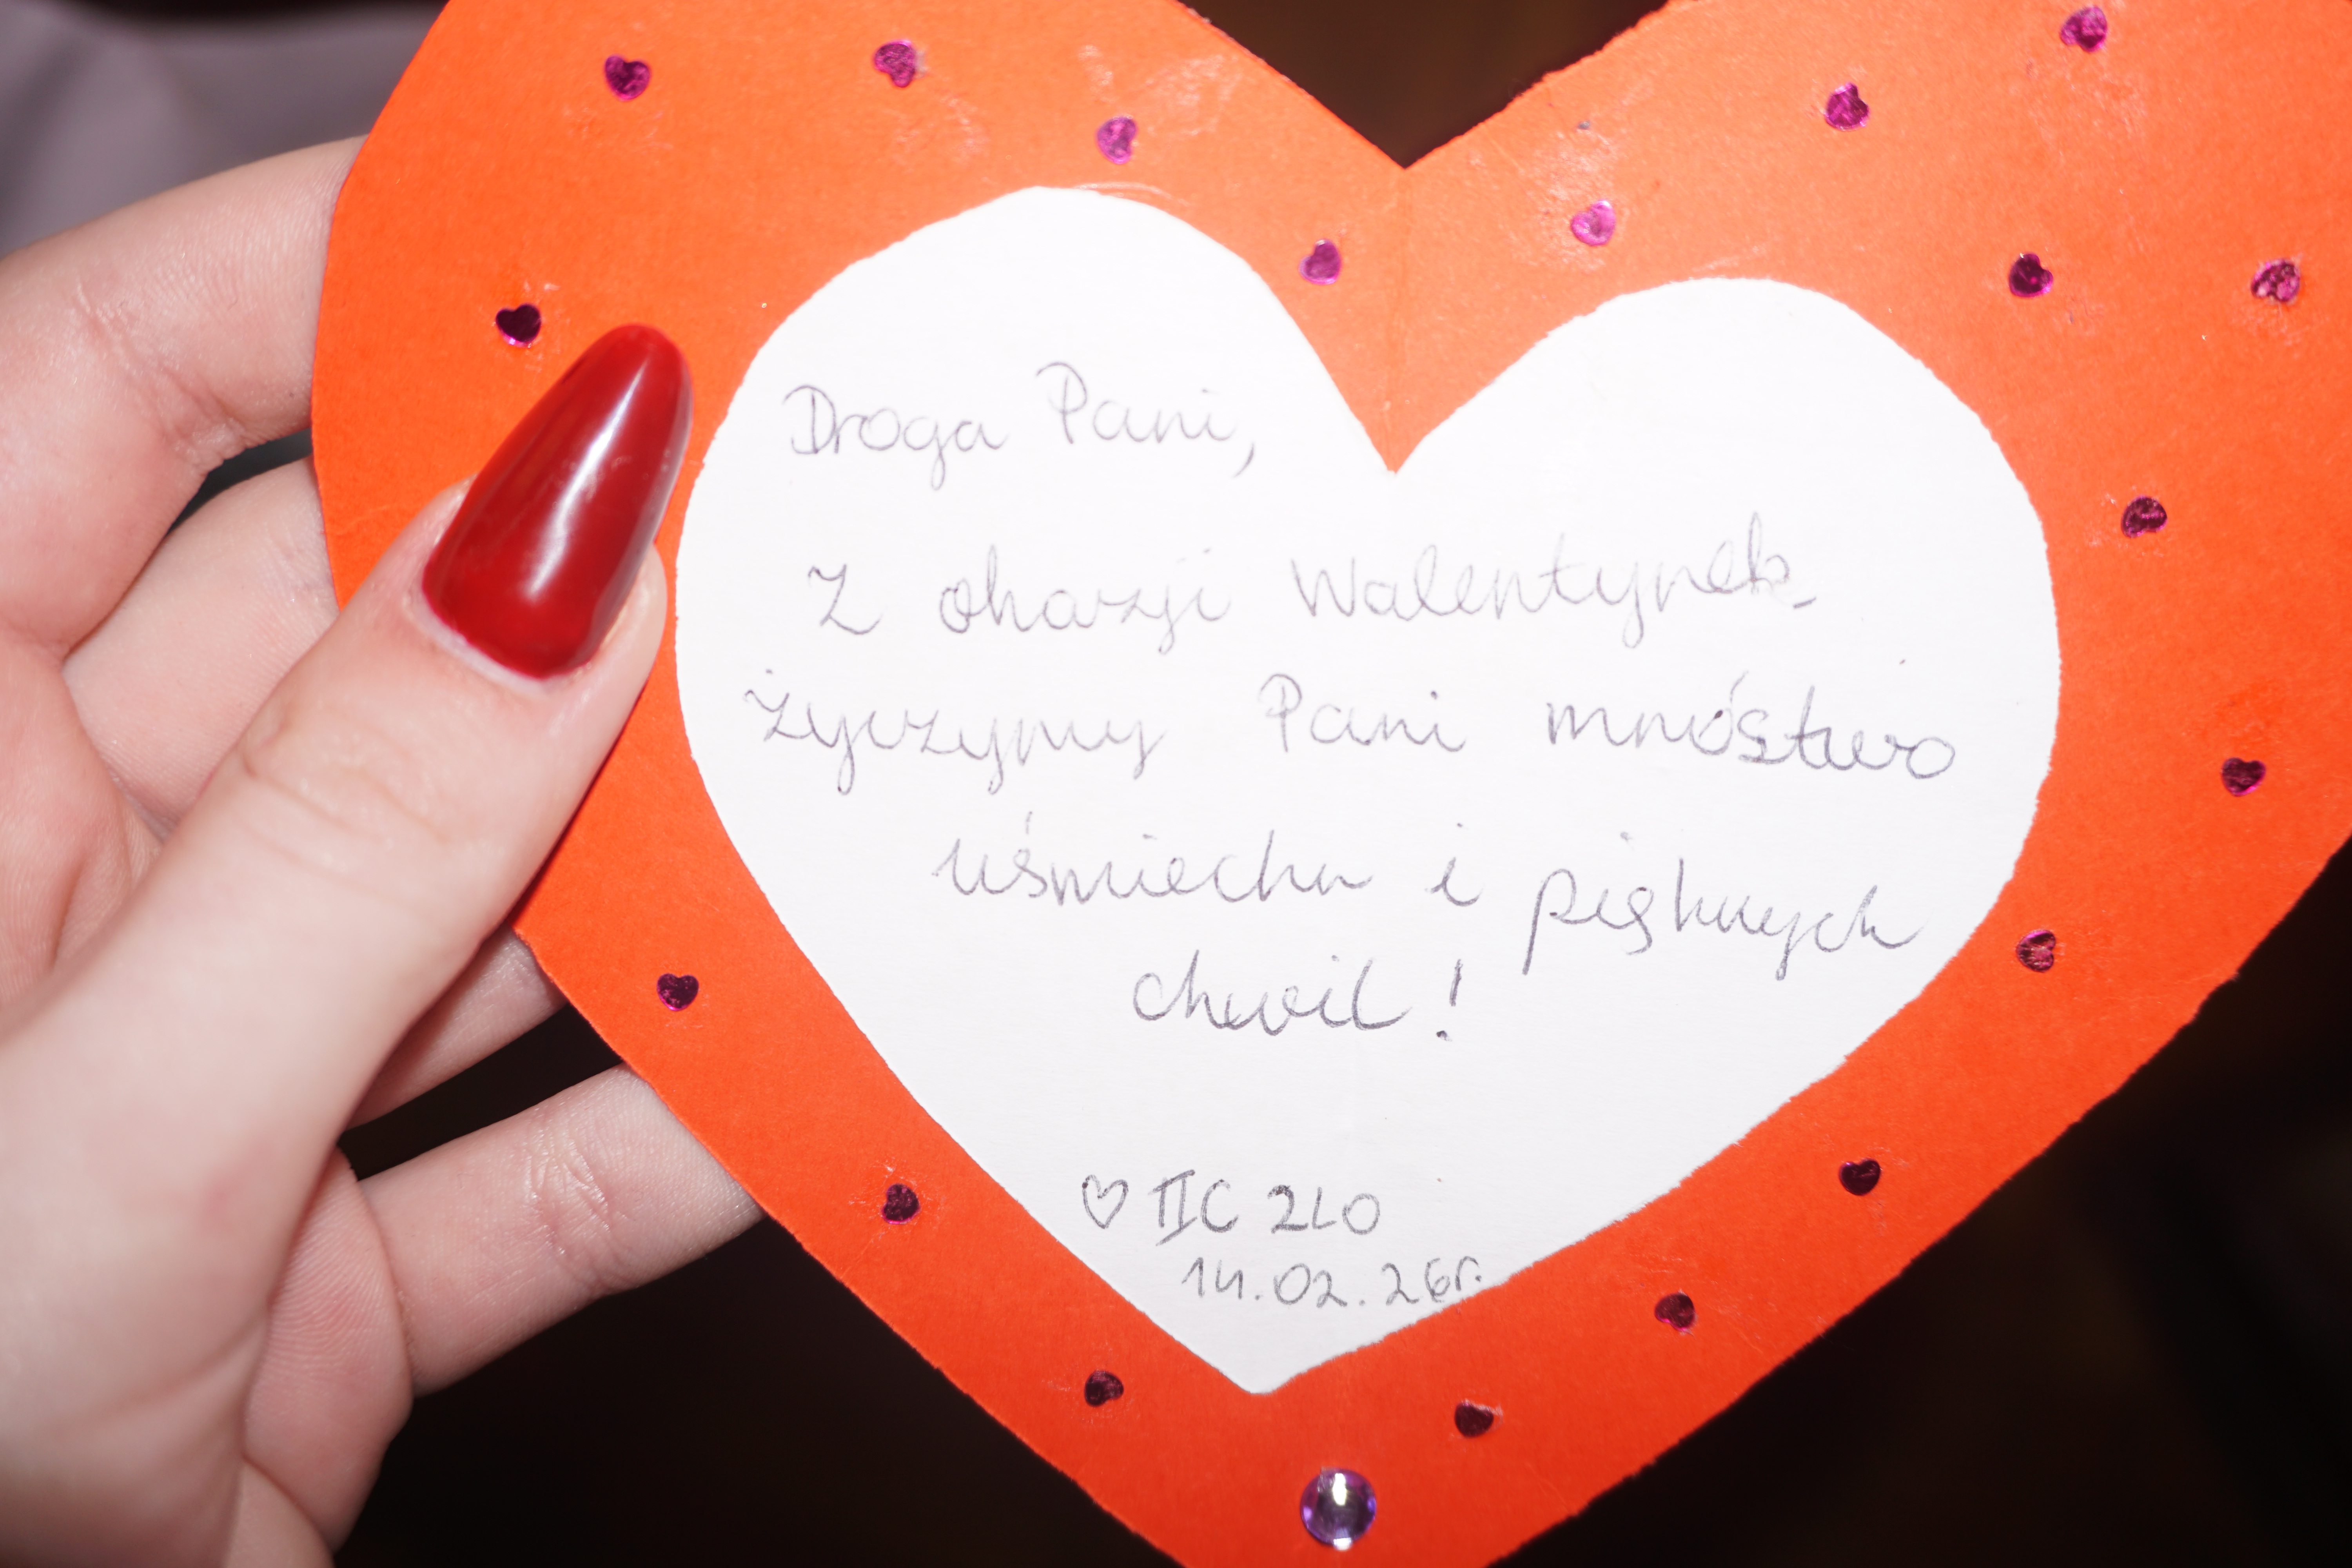 Droga Pani,
Z okazji Walentynek
życzymy Pani mnóstwo
uśmiechu i pięknych
chwil!
♡ IIC 2LO
14.02.26r.